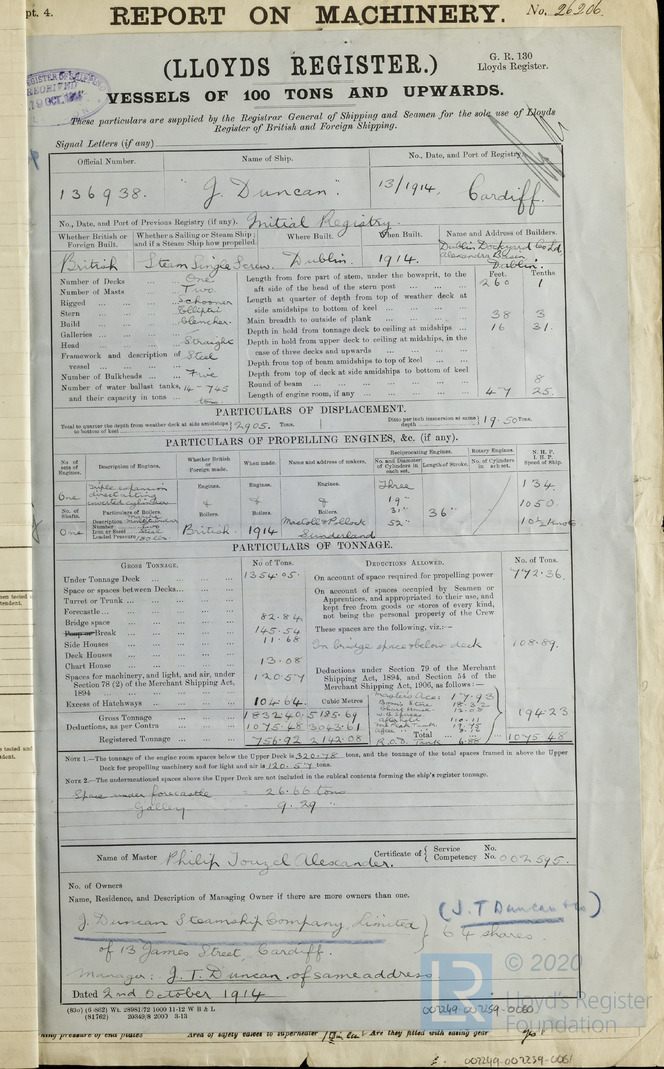 pt. 4.
REPORT ON MACHINERY. No. 26206.
G. R. 130
Lloyds Register.
(LLOYDS REGISTER.)
VESSELS OF 100 TONS AND UPWARDS.
These particulars are supplied by the Registrar General of Shipping and Seamen for the sole use of Lloyds
Register of British and Foreign Shipping.
Signal Letters (if any)
Official Number. Name of Ship. No., Date, and Port of Registry.
136938. "J. Duncan". 13/1914, Cardiff.
No., Date, and Port of Previous Registry (if any). Initial Registry.
Whether British or Foreign Built. Whether a Sailing or Steam Ship; and if a Steam Ship how propelled. Where Built. When Built. Name and Address of Builders.
British Steam Single Screw. Dublin. 1914. Dublin Dockyard Co Ld. Alexandra Basin Dublin.
Number of Decks ... One
Number of Masts ... Two
Rigged ... Schooner
Stern ... Elliptic
Build ... Clencher.
Galleries ...
Head ... Straight
Framework and description of vessel ... Steel
Number of Bulkheads ... Five
Number of water ballast tanks, and their capacity in tons ... 14 - 745 tons
Feet. Tenths.
Length from fore part of stem, under the bowsprit, to the aft side of the head of the stern post ... 260 1
Length at quarter of depth from top of weather deck at side amidships to bottom of keel ...
Main breadth to outside of plank ... 38 3
Depth in hold from tonnage deck to ceiling at midships ... 16 31.
Depth in hold from upper deck to ceiling at midships, in the case of three decks and upwards ...
Depth from top of beam amidships to top of keel ...
Depth from top of deck at side amidships to bottom of keel
Round of beam ... 8
Length of engine room, if any ... 47 25.
PARTICULARS OF DISPLACEMENT.
Total to quarter the depth from weather deck at side amidships to bottom of keel 2905. Tons. Ditto per inch immersion at same depth 19.50 Tons.
PARTICULARS OF PROPELLING ENGINES, &c. (if any).
No. of sets of Engines. Description of Engines. Whether British or Foreign made. When made. Name and address of makers. Reciprocating Engines. No. and Diameter of Cylinders in each set. Length of Stroke. Rotary Engines. No. of Cylinders in each set. N. H. P. I. H. P. Speed of Ship.
One Triple expansion direct acting inverted cylinder Engines. Engines. Engines. Three 134.
No. of Shafts. Particulars of Boilers. & & & 19" 31" 36" 1050.
Description Multitubular Boilers. Boilers. Boilers.
Number
Iron or Steel Steel
One Loaded Pressure 180 lbs British. 1914 MacColl & Pollock Sunderland 52" 10½ Knots
PARTICULARS OF TONNAGE.
GROSS TONNAGE. No of Tons. DEDUCTIONS ALLOWED. No. of Tons.
Under Tonnage Deck ... 1354.05.
Space or spaces between Decks ...
Turret or Trunk ...
Forecastle ...
Bridge space ... 82.84
Poop or Break ... 145.54
Side Houses ... 11.68
Deck Houses ...
Chart House ... 13.08
Spaces for machinery, and light, and air, under Section 78 (2) of the Merchant Shipping Act, 1894 ... 120.57
Excess of Hatchways ... 104.64 Cubic Metres
Gross Tonnage 1832.40 5185.69
Deductions, as per Contra 1075.48 3043.61
Registered Tonnage 756.92 2142.08
On account of space required for propelling power 772.36.
On account of spaces occupied by Seamen or Apprentices, and appropriated to their use, and kept free from goods or stores of every kind, not being the personal property of the Crew
These spaces are the following, viz.:—
In bridge space & below deck 108.89.
Deductions under Section 79 of the Merchant Shipping Act, 1894, and Section 54 of the Merchant Shipping Act, 1906, as follows:—
Masters Acc: 17.93
Bosn's Store 18.32
Chart House 13.08
110.11
Total 194.23
6.88 1075.48
NOTE 1.—The tonnage of the engine room spaces below the Upper Deck is 320.78 tons, and the tonnage of the total spaces framed in above the Upper Deck for propelling machinery and for light and air is 120.57 tons.
NOTE 2.—The undermentioned spaces above the Upper Deck are not included in the cubical contents forming the ship's register tonnage.
Space under forecastle = 26.66 tons
Galley = 9.29 "
Name of Master Philip Touzel Alexander. Certificate of { Service Competency No. No. 002595.
No. of Owners
Name, Residence, and Description of Managing Owner if there are more owners than one.
(J. T Duncan & Co)
J. Duncan Steamship Company, Limited } 64 shares.
of 13 James Street, Cardiff.
Manager: J. T. Duncan, of same address
Dated 2nd October 1914
(830) (6 862) Wt. 28981/72 1000 11-12 W B & L
(81762) 20349/8 2000 3-13
002249-002259-0060
LR © 2020
Lloyd's Register
Foundation
Area of safety valves to superheater Are they fitted with easing gear
002249-002259-0061